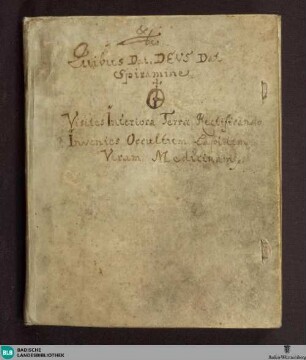 Quibus Dat. DEUS Dat
Spiramine
Visites Interiora Terræ Rectificando
Invenies Occultum Lapidem
Veram Medicinam.
BLB
BADISCHE
LANDESBIBLIOTHEK